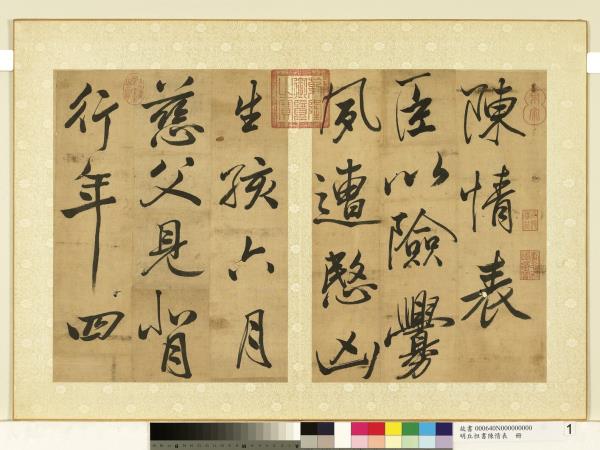 陳情表
臣以險釁
夙遭愍凶
生孩六月
慈父見背
行年四
乾隆御覽之寶
故書 000640N000000000
明丘担書陳情表 冊
1